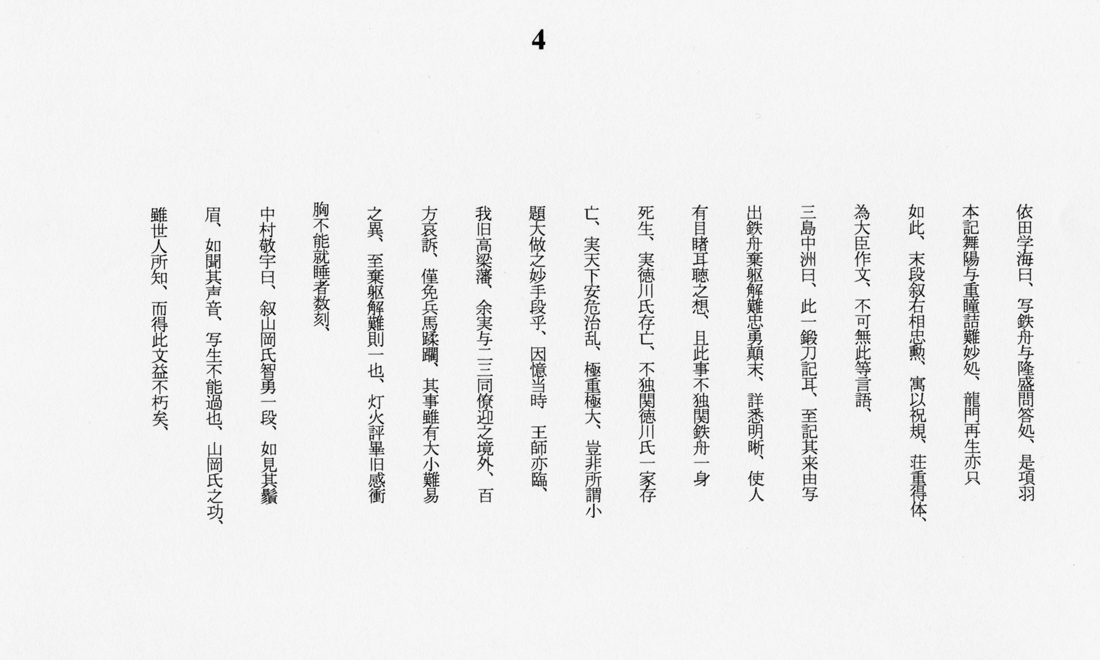 4
依田学海曰、写鉄舟与隆盛問答処、是項羽
本記舞陽与重瞳詰難妙処、龍門再生亦只
如此、末段叙右相忠勲、寓以祝規、荘重得体、
為大臣作文、不可無此等言語、
三島中洲曰、此一鍛刀記耳、至記其来由写
出鉄舟棄躯解難忠勇顛末、詳悉明晰、使人
有目睹耳聴之想、且此事不独関鉄舟一身
死生、実徳川氏存亡、不独関徳川氏一家存
亡、実天下安危治乱、極重極大、豈非所謂小
題大做之妙手段乎、因憶当時　王師亦臨、
我旧高梁藩、余実与二三同僚迎之境外、百
方哀訴、僅免兵馬蹂躙、其事雖有大小難易
之異、至棄躯解難則一也、灯火評畢旧感衝
胸不能就睡者数刻、
中村敬宇曰、叙山岡氏智勇一段、如見其鬚
眉、如聞其声音、写生不能過也、山岡氏之功、
雖世人所知、而得此文益不朽矣、